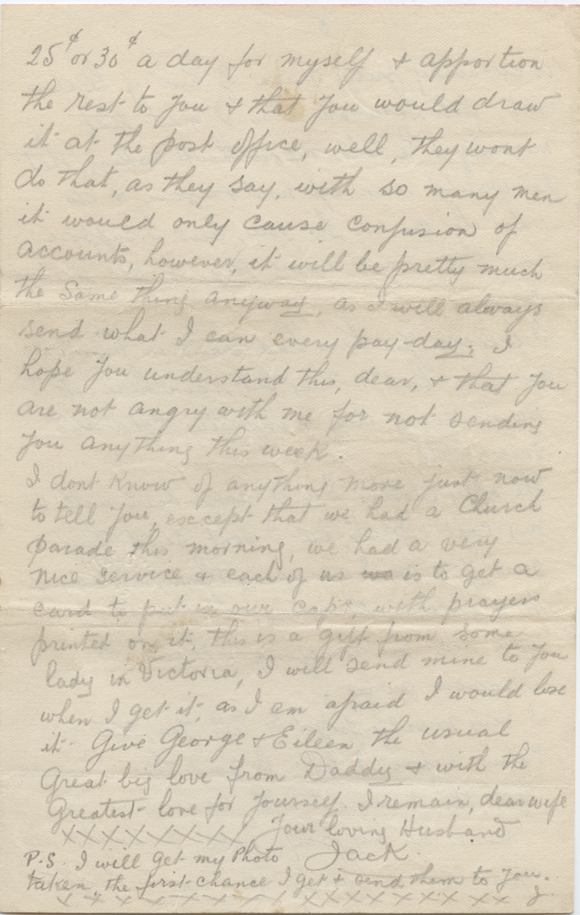 25¢ or 30¢ a day for myself & apportion
the rest to you & that you would draw
it at the post office, well, they wont
do that, as they say, with so many men
it would only cause confusion of
accounts, however, it will be pretty much
the same thing anyway, as I will always
send what I can every pay-day; I
hope you understand this, dear, & that you
are not angry with me for not sending
you anything this week.
I dont know of anything more just now
to tell you, exccept that we had a Church
parade this morning, we had a very
nice service & each of us is to get a
card to put in our caps, with prayers
printed on it, this is a gift from some
lady in Victoria, I will send mine to you
when I get it, as I am afraid I would lose
it. Give George & Eileen the usual
Great big love from Daddy & with the
Greatest love for yourself. I remain, dear wife
XXXXXXXX Your loving Husband
Jack.
P.S. I will get my Photo
taken, the first chance I get & send them to you.
J.
X X X X X X X X X X X X X X